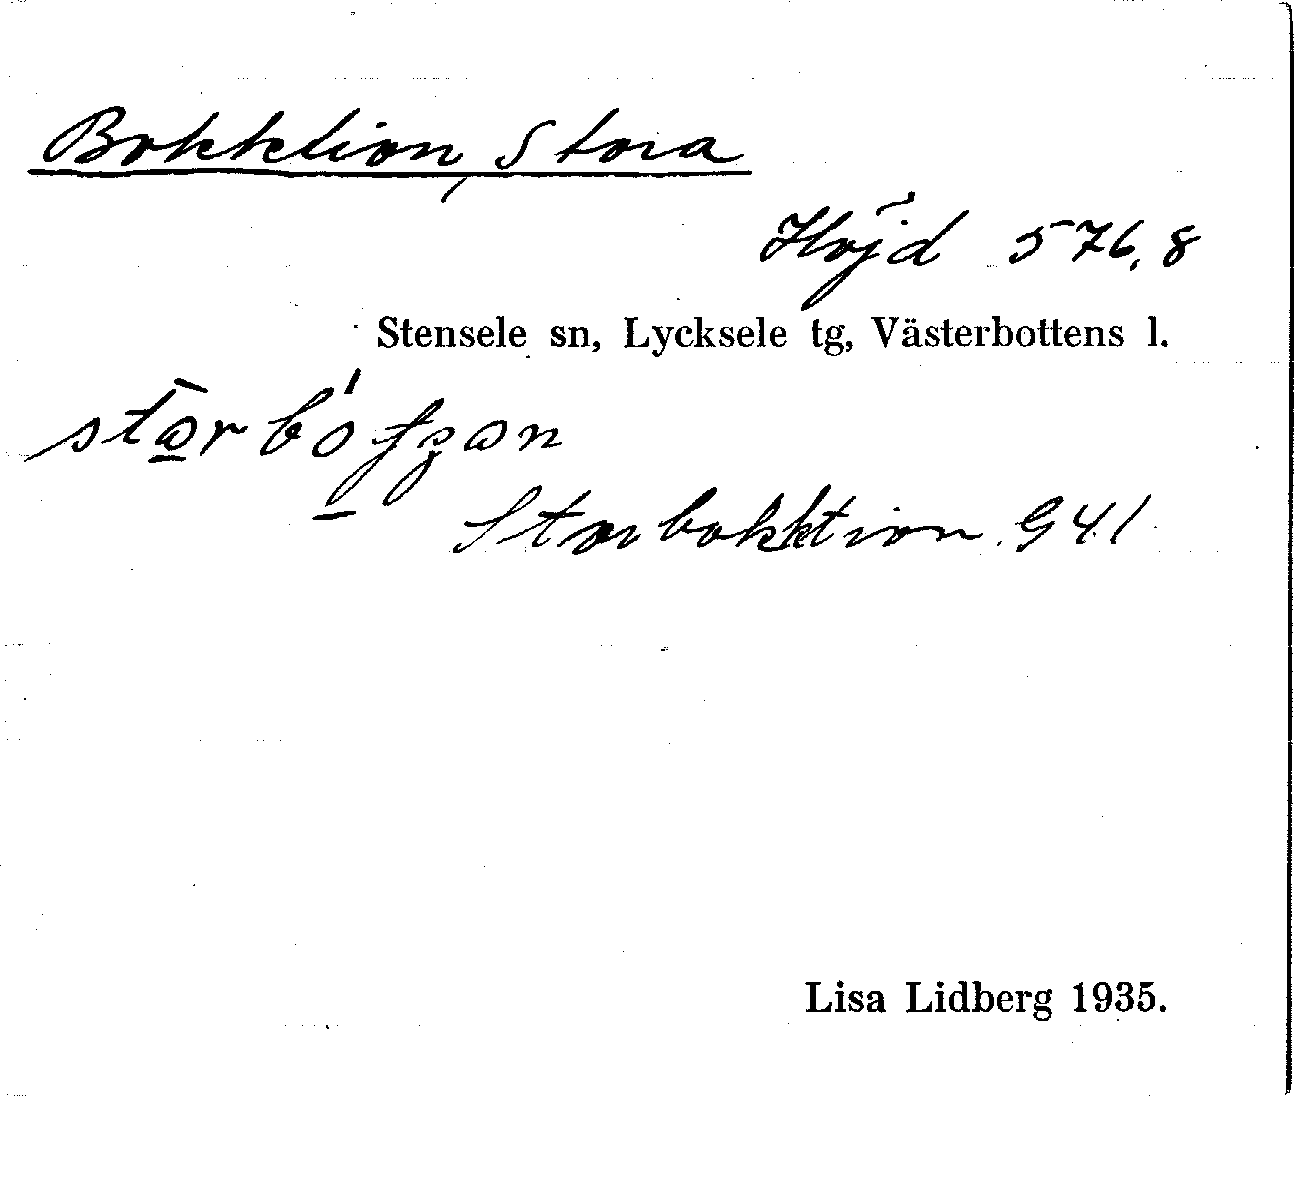 Bokktion, Stora
Höjd 576,8
Stensele sn, Lycksele tg, Västerbottens l.
Storbokktion G41
Lisa Lidberg 1935.